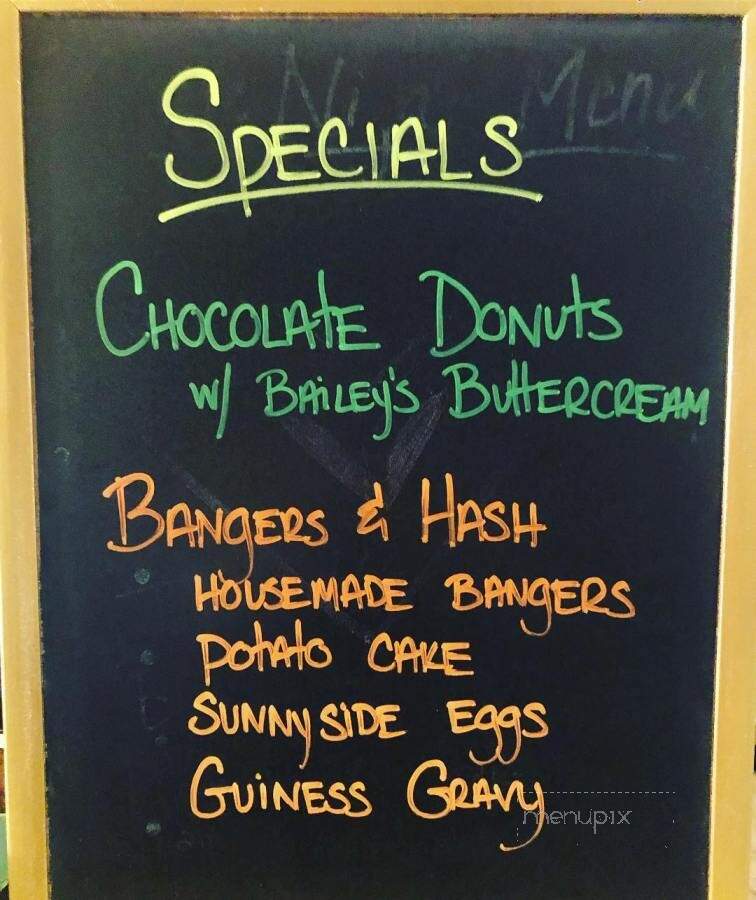 Menu
SPECIALS
CHOCOLATE DONUTS
w/ BAILEY'S BUTTERCREAM
BANGERS & HASH
HOUSEMADE BANGERS
POTATO CAKE
SUNNYSIDE EGGS
GUINESS GRAVY
menupix